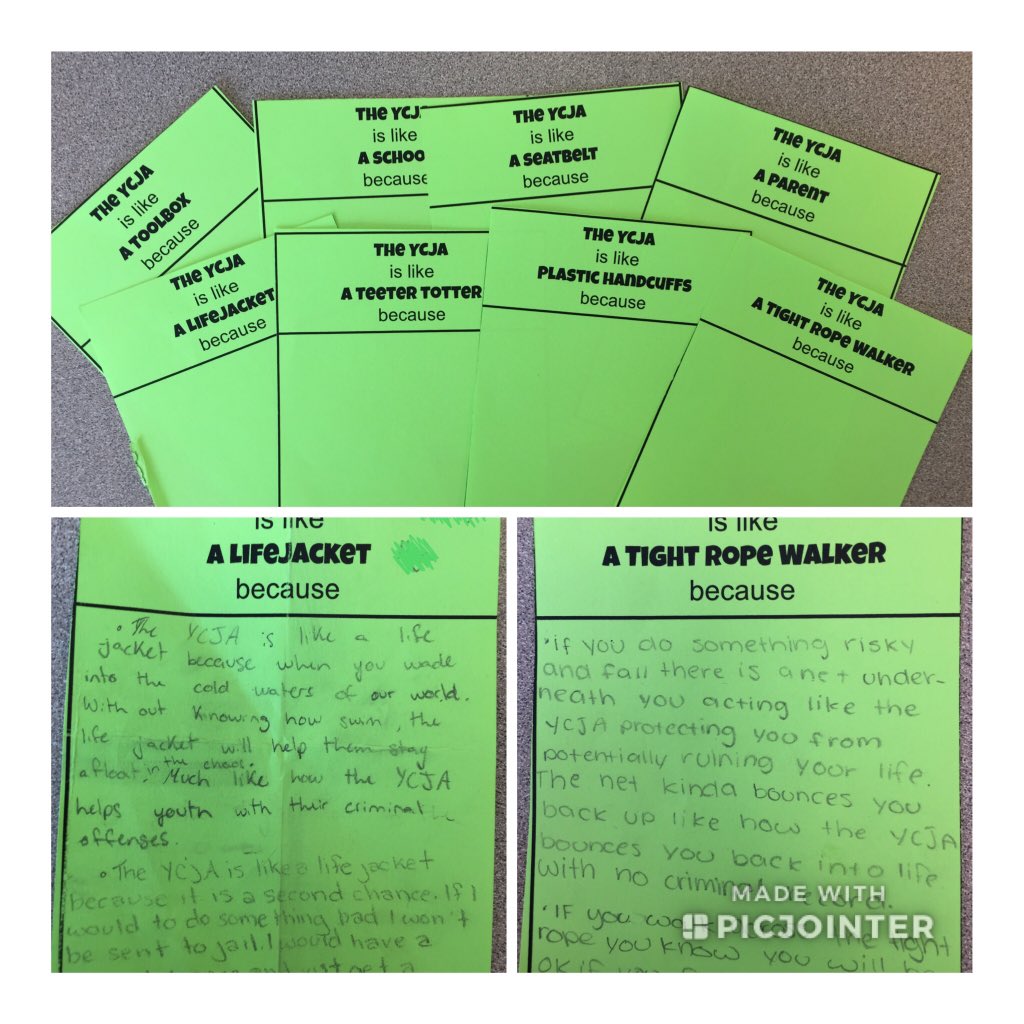 THE YCJA
is like
A TOOLBOX
because
THE YCJ
is like
A SCHOO
because
THE YCJA
is like
A SEATBELT
because
THE YCJA
is like
A PARENT
because
THE YCJA
is like
A LIFEJACKET
because
THE YCJA
is like
A TEETER TOTTER
because
THE YCJA
is like
PLASTIC HANDCUFFS
because
THE YCJA
is like
A TIGHT ROPE WALKER
because
is like
A LIFEJACKET
because
• The YCJA is like a life
jacket because when you wade
into the cold waters of our world.
With out knowing how swim, the
life jacket will help them stay
afloat in the chaos. Much like how the YCJA
helps youth with their criminal
offenses.
• The YCJA is like a life jacket
because it is a second chance. If I
would to do something bad I won't
be sent to jail. I would have a
and just get a
is like
A TIGHT ROPE WALKER
because
• if you do something risky
and fall there is a net under-
neath you acting like the
YCJA protecting you from
potentially ruining your life.
The net kinda bounces you
back up like how the YCJA
bounces you back into life
with no criminal
• IF you the tight
rope you know you will be
OK if you
MADE WITH
PICJOINTER